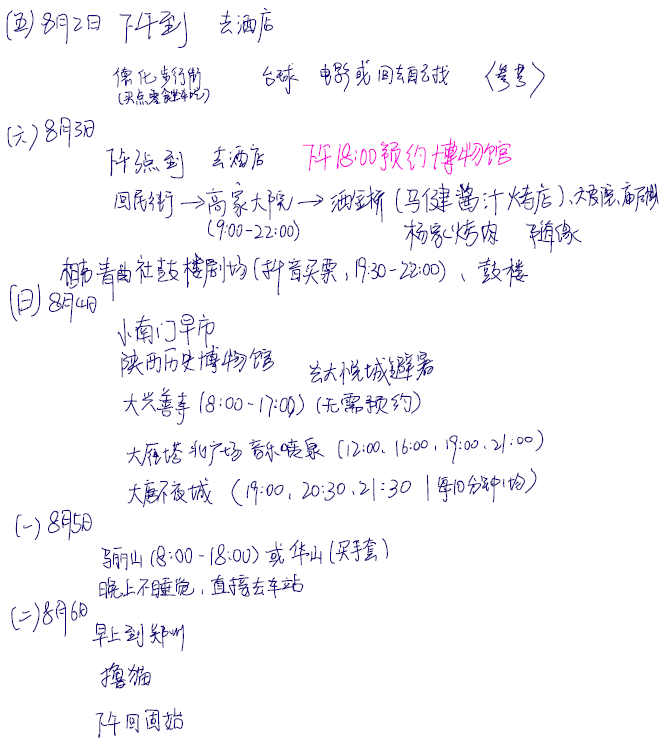 (五) 8月2日 下午到 去酒店
德化步行街 台球 电影或回去自己找 〈参考〉
(买点零食车吃)
(六) 8月3日
下午3点到 去酒店 下午18:00预约博物馆
回民街→高家大院→洒金桥(马健酱汁烤店)、大皮院、庙后街
(9:00-22:00) 杨家烤肉
相声青曲社鼓楼剧场(抖音买票,19:30-22:00)、鼓楼
(日) 8月4日
小南门早市
陕西历史博物馆 去大悦城避暑
大兴善寺(8:00-17:00)(无需预约)
大雁塔北广场音乐喷泉(12:00、16:00、19:00、21:00)
大唐不夜城 (19:00、20:30、21:30 每10分钟1场)
(一) 8月5日
骊山(8:00-18:00)或华山(买手套)
晚上不睡觉,直接去车站
(二) 8月6日
早上到郑州
撸猫
下午回固始